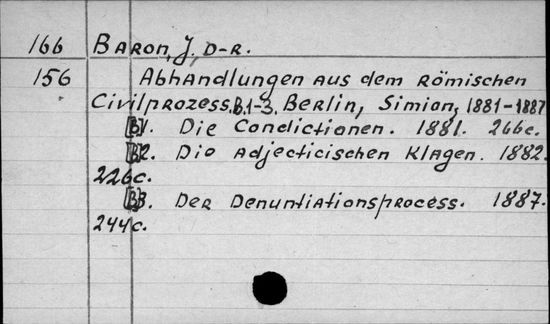 166 Baron, J, D-R.
156 Abhandlungen aus dem Römischen
Civilprozess. B. 1-3. Berlin, Simion, 1881-1887
[B]1. Die Condictionen. 1881. 266c.
[B]2. Die Adjecticischen Klagen. 1882.
226c.
[B]3. Der Denuntiationsprocess. 1887.
244c.